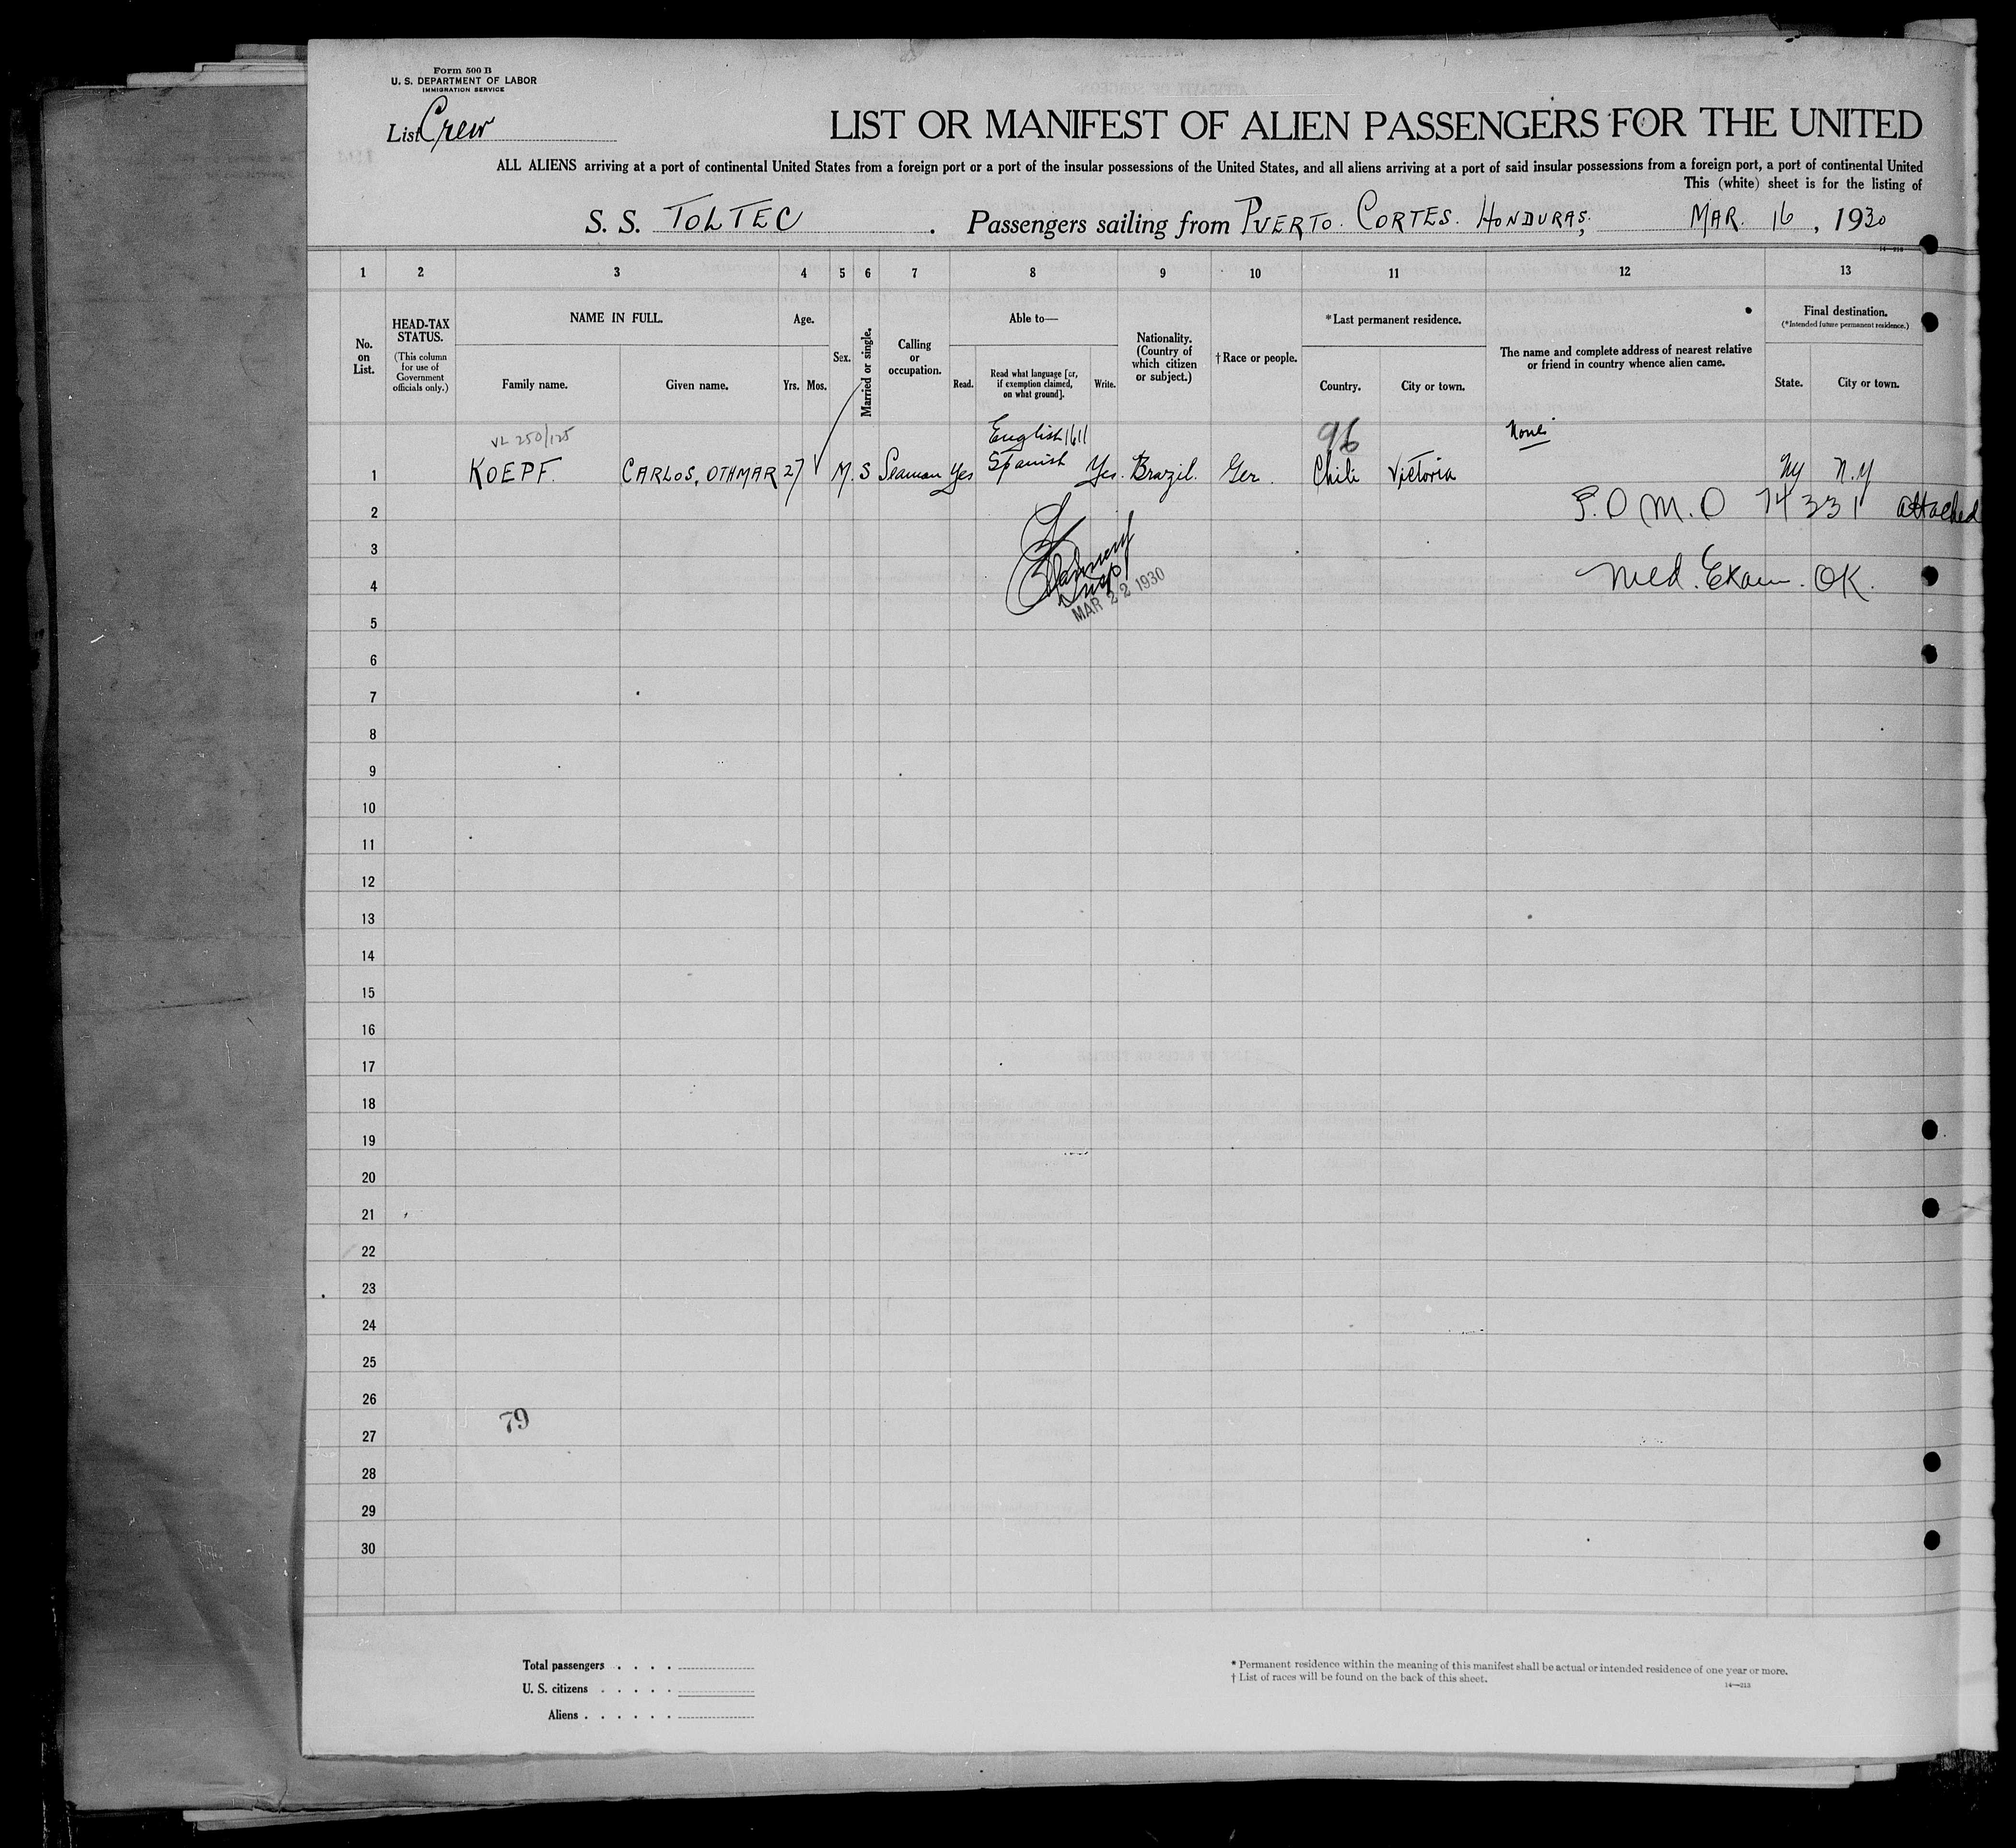 Form 500 B
U. S. DEPARTMENT OF LABOR
IMMIGRATION SERVICE
List Crew
LIST OR MANIFEST OF ALIEN PASSENGERS FOR THE UNITED
ALL ALIENS arriving at a port of continental United States from a foreign port or a port of the insular possessions of the United States, and all aliens arriving at a port of said insular possessions from a foreign port, a port of continental United
This (white) sheet is for the listing of
S. S. TOLTEC . Passengers sailing from PUERTO. CORTES. HONDURAS; MAR. 16, 1930
1 2 3 4 5 6 7 8 9 10 11 12 13
No. on List.
HEAD-TAX STATUS.
(This column for use of Government officials only.)
NAME IN FULL.
Family name.
Given name.
Age.
Yrs. Mos.
Sex.
Married or single.
Calling or occupation.
Able to—
Read.
Read what language [or, if exemption claimed, on what ground].
Write.
Nationality. (Country of which citizen or subject.)
†Race or people.
*Last permanent residence.
Country.
City or town.
The name and complete address of nearest relative or friend in country whence alien came.
Final destination.
(*Intended future permanent residence.)
State.
City or town.
VL 250/125 English 1611 96 None
1 KOEPF. CARLOS, OTHMAR 27 M. S Seaman Yes Spanish Yes. Brazil. Ger. Chili Victoria NY N.Y
2 74331 attached
3
4 Med. Exam. OK.
MAR 22 1930
5
6
7
8
9
10
11
12
13
14
15
16
17
18
19
20
21
22
23
24
25
26
79
27
28
29
30
Total passengers . . . .
U. S. citizens . . . . .
Aliens . . . . . .
* Permanent residence within the meaning of this manifest shall be actual or intended residence of one year or more.
† List of races will be found on the back of this sheet.
14—213